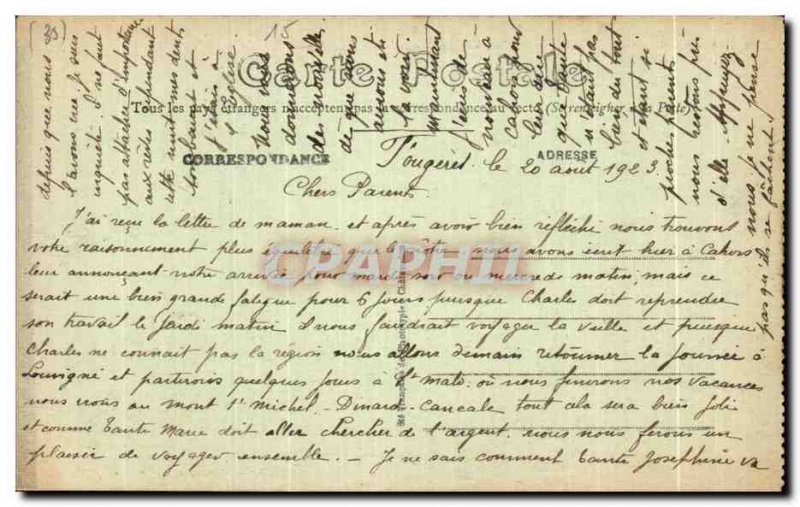 Carte Postale
Tous les pays étrangers n'acceptent pas la correspondance au recto (Se renseigner à la Poste)
CORRESPONDANCE
ADRESSE
Fougères le 20 août 1923.
Chers Parents
J'ai reçu la lettre de maman et après avoir bien réfléchi nous trouvons
votre raisonnement plus que le nôtre nous avons écrit hier à Cahors
leur annonçant notre arrivée pour mardi soir ou mercredi matin, mais ce
serait une bien grande fatigue pour 6 jours puisque Charles doit reprendre
son travail le Jeudi matin il nous faudrait voyager la veille et puisque
Charles ne connait pas la région nous allons demain retourner la journée à
Louvigné et partirons quelques jours à St Malo où nous finirons nos vacances
nous irons au mont St Michel - Dinard - Cancale tout cela sera bien joli
et comme tante Marie doit aller chercher de l'argent nous nous ferons un
plaisir de voyager ensemble. - Je ne sais comment tante Joséphine va
(38)
depuis que nous
l'avons vue. Je suis
inquiète. Il ne faut
pas attacher d'importance
aux rêves cependant
cette nuit mes dents
tombaient et
j'étais à
l'église.
15
nous vous
donnerons
de nouvelles
dès que nous
aurons
la voir.
maintenant
j'écris de
nouveau à
Cahors pour
leur dire
que tante
n'étant pas
bien du tout
et étant si
proches parents
nous restons près
d'elle. Appuyez
nous je ne pense
pas qu'ils se fâchent.
CPAPHIL